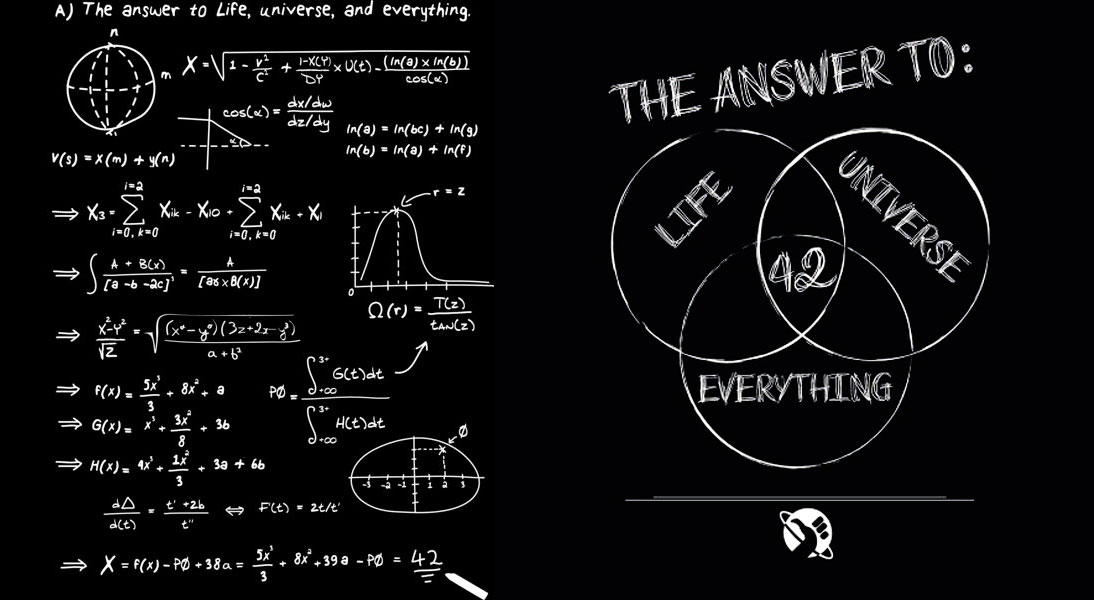 A) The answer to Life, universe, and everything.
n
m
X = √1 - v²/c² + 1-X(Y)/DY × U(t) - (ln(a) x ln(b))/cos(α)
cos(α) = dx/dw / dz/dy
α
ln(a) = ln(bc) + ln(g)
ln(b) = ln(a) + ln(f)
V(s) = x(m) + y(n)
r = z
i=2 i=2
⇒ X₃ = ∑ Xik - X10 + ∑ Xik + Xi
i=0, k=0 i=0, k=0
⇒ ∫ A + B(x) / [a - b - 2c]³ = A / [a8 x B(x)]
0
Ω(r) = T(z)/tAN(z)
⇒ x² - Y² / √Z = √(x⁰ - y⁰)(3z+2x-y³) / a + b²
⇒ f(x) = 5x³/3 + 8x² + a
PØ = ∫ 3+ -∞ G(t)dt / ∫ 3+ -∞ H(t)dt
⇒ G(x) = x³ + 3x²/8 + 3b
⇒ H(x) = 4x³ + 1x²/3 + 3a + 6b
Ø
-3 -2 -1 1 2 3
d△/d(t) = t' + 2b / t'' ⇔ F'(t) = 2t/t'
⇒ X = f(x) - PØ + 38a = 5x³/3 + 8x² + 39a - PØ = 42
THE ANSWER TO:
LIFE
UNIVERSE
42
EVERYTHING